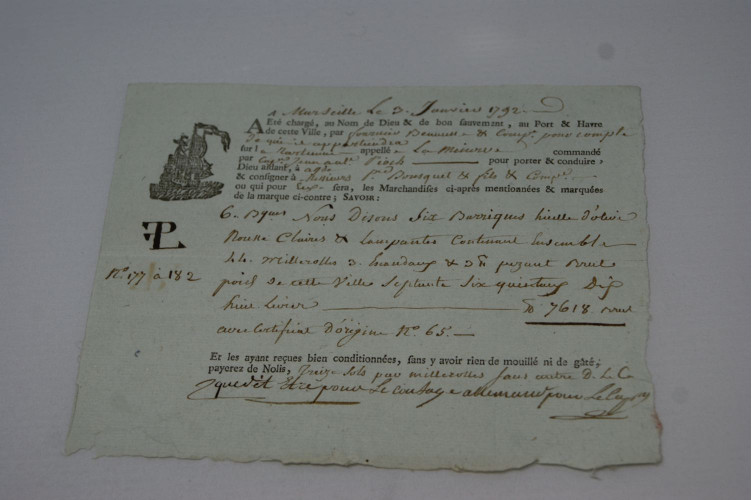 a Marseille Le 3. Janvier 1792.
A Eté chargé, au Nom de Dieu & de bon sauvement, au Port & Havre
de cette Ville, par & Comp.e pour compte
de qui il appartiendra
sur la appellé La commandé
par Cap.ne pour porter & conduire,
Dieu aidant, à Agde
& consigner à Messieurs Bousquet & fils & Comp.e
ou qui pour eux sera, les Marchandises ci-après mentionnées & marquées
de la marque ci-contre; SAVOIR:
6. Bques Nous Disons Six Barriques huille d'olive
PL
Claires & Lampantes Contenant Ensemble
Millerolles 3. Escandaux & pezant Brut
N.os 177 à 182
poids de cette Ville Septante Six quintaux Dix
huit Livres 7618 brut
avec Certifficat D'origine N.o 65.
Et les ayant reçues bien conditionnées, sans y avoir rien de mouillé ni de gâté;
payerez de Nolis, Treize Sols par millerolles Sans autre D. Le Ca
pour Le pour Le